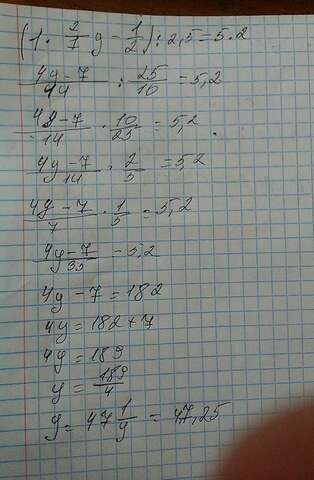 (1 · 2/7 y - 1/2) : 2,5 = 5.2
4y-7/44 : 25/10 = 5,2
4y-7/14 · 10/25 = 5,2
4y-7/14 · 2/5 = 5,2
4y-7/7 · 1/5 = 5,2
4y-7/35 = 5.2
4y - 7 = 182
4y = 182 + 7
4y = 189
y = 189/4
y = 47 1/4 = 47,25